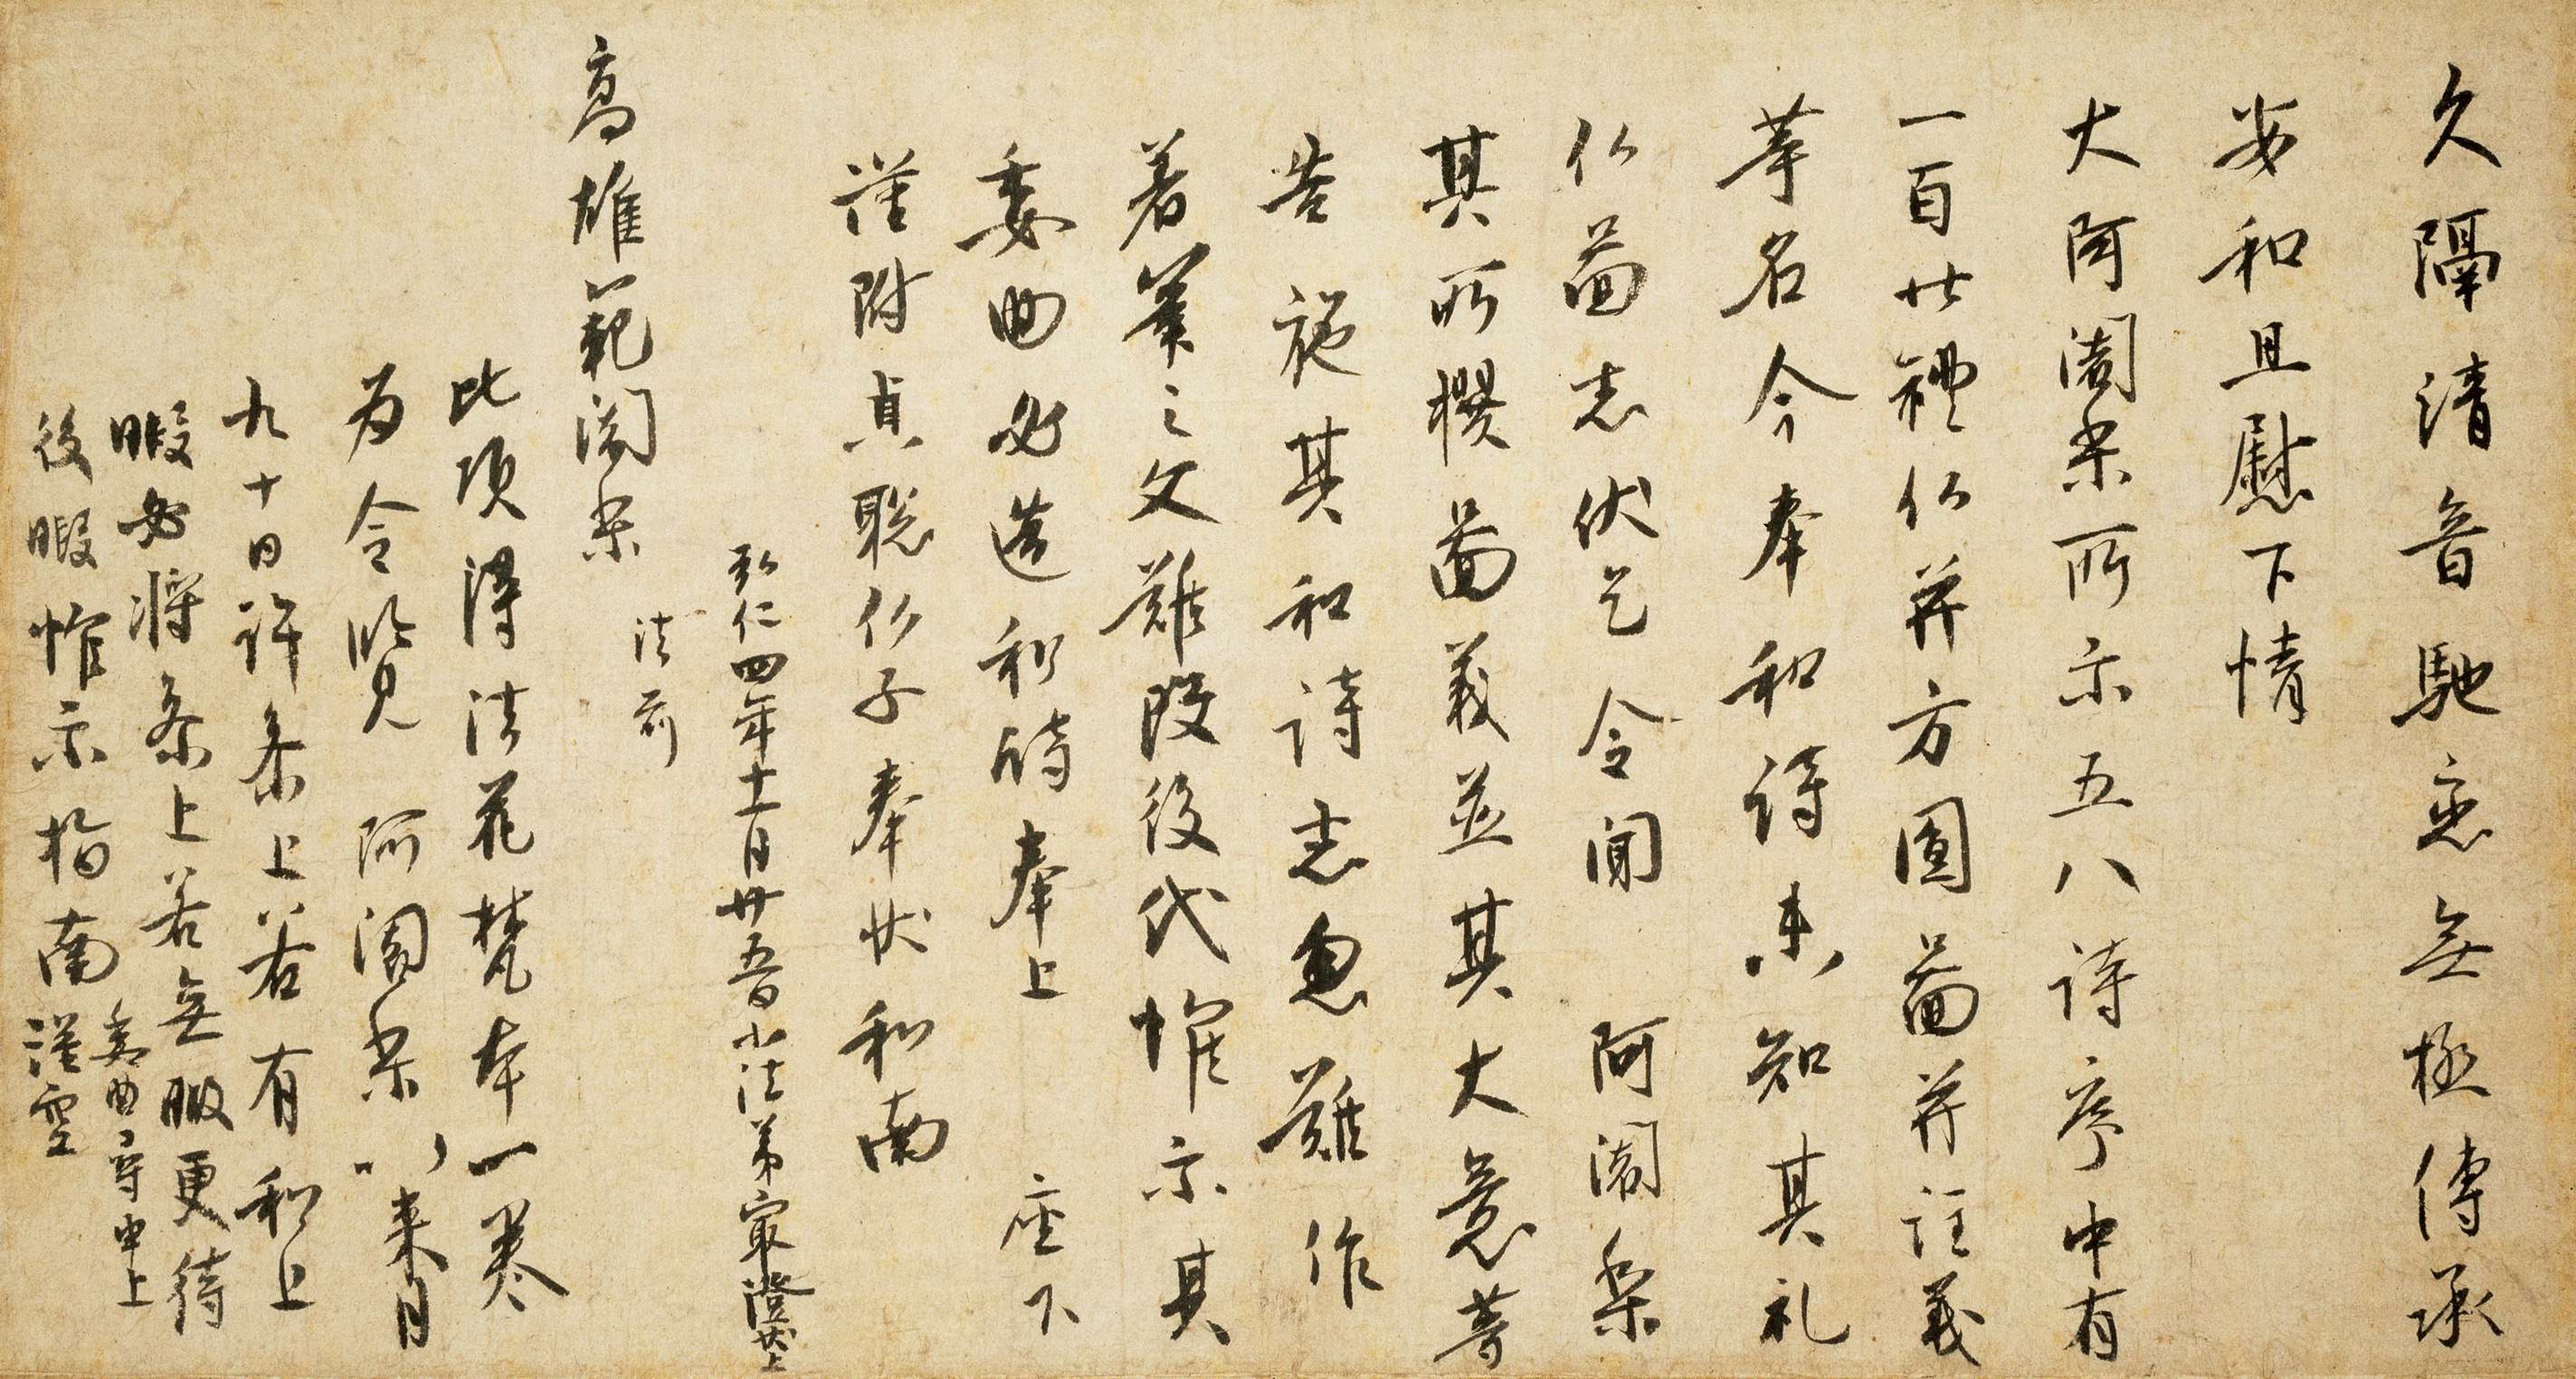 久隔清音馳恋無極傳承
安和且慰下情
大阿闍梨所示五八詩序中有
一百廿禮仏并方圓圖并註義
等名今奉和詩未知其礼
仏圖志伏乞令聞　阿闍梨
其所撰圖義並其大意等
告施其和詩者忽難作
著筆之文難改後代惟示其
委曲必造和詩奉上　座下
謹附貞聡仏子奉状和南
弘仁四年十一月廿五日小法弟最澄状上
高雄範闍梨
法前
此頃得法花梵本一巻
為令覧　阿闍梨以来月
九十日許参上若有和上
暇必将参上若無暇更待
後暇惟示指南　委曲尋申上
謹空